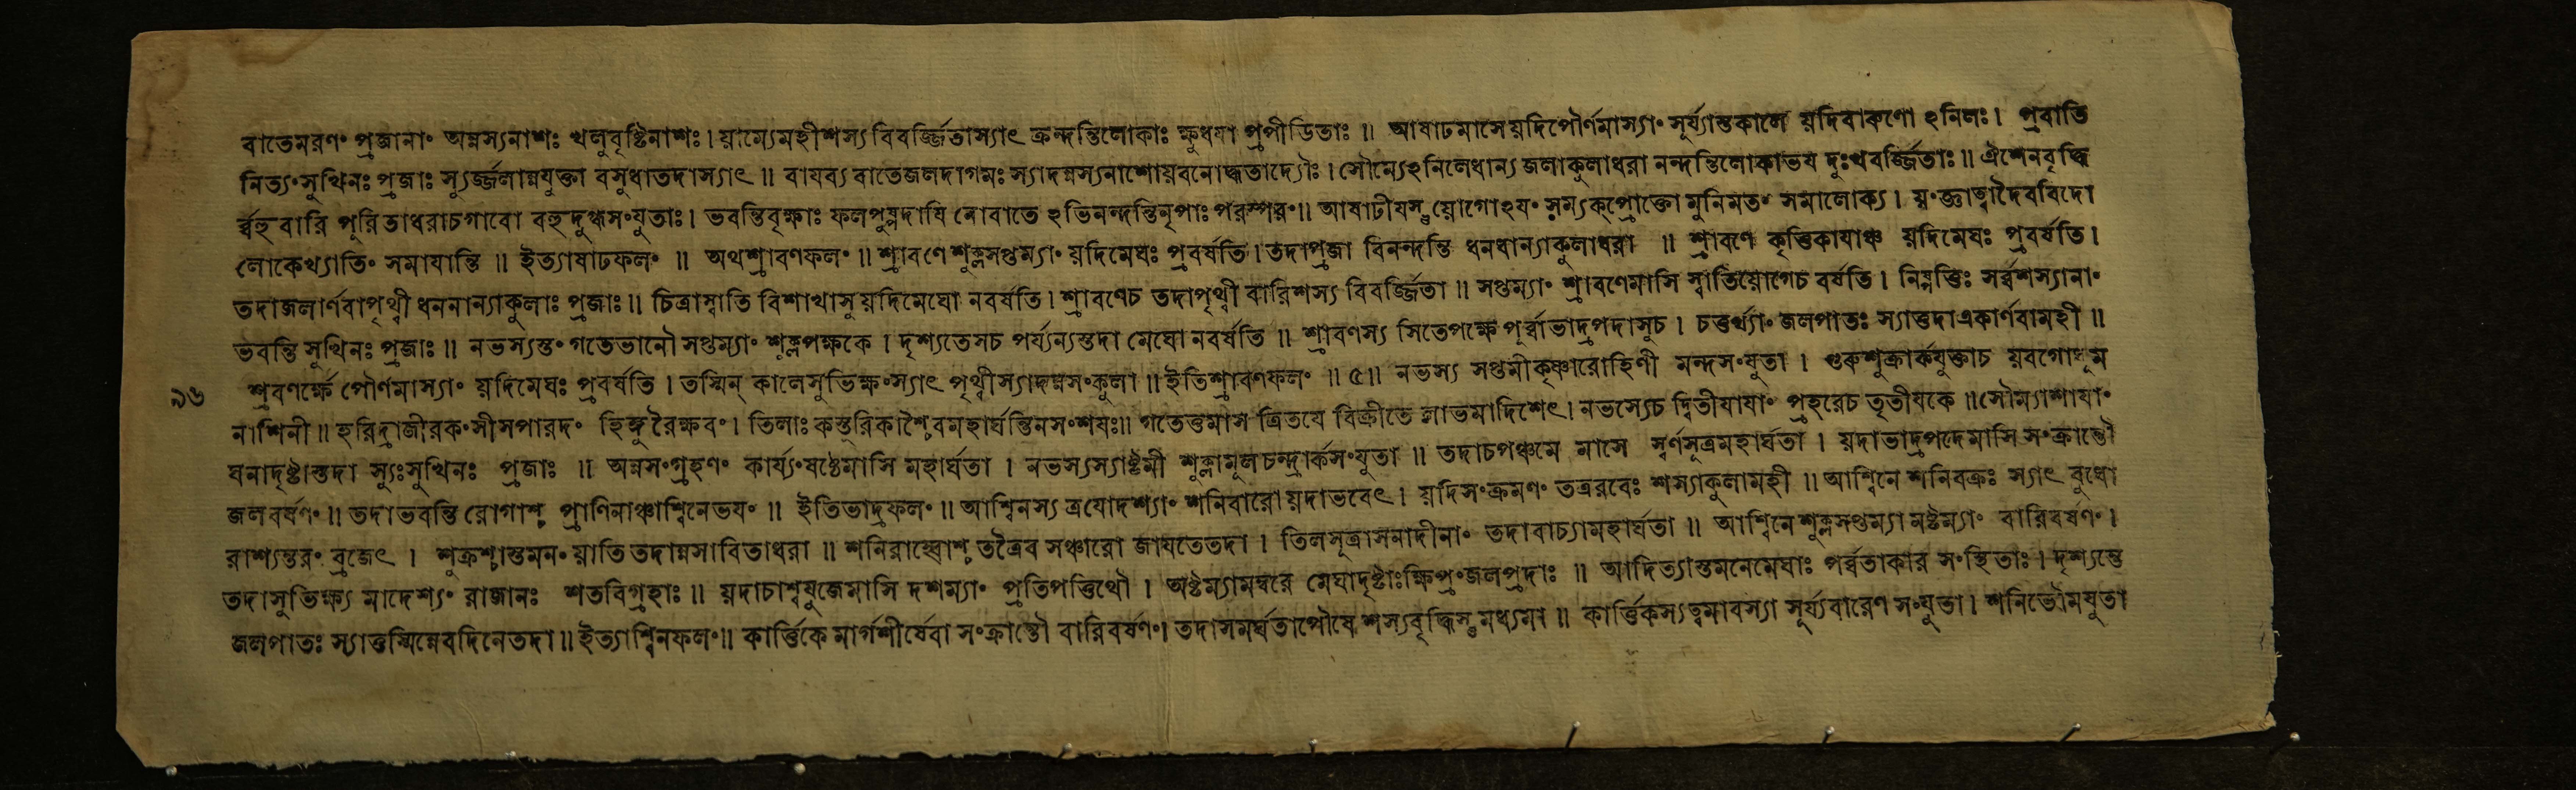 বাতেমরণং প্রজানাং অন্নস্যনাশঃ খলুবৃষ্টিনাশঃ। য়াম্যেমহীশস্য বিবর্জ্জিতাস্যাৎ ক্রন্দন্তিলোকাঃ ক্ষুধযা প্রপীডিতাঃ॥ আষাঢমাসেয়দিপৌর্ণমাস্যাং সূর্য্যাস্তকালে য়দিবারুণো ঽনিলঃ। প্রবাতি
নিত্যংসুখিনঃ প্রজাঃ স্যুর্জ্জলান্নযুক্তা বসুধাতদাস্যাৎ॥ বাযব্য বাতেজলদাগমঃ স্যাদন্নস্যনাশোয়বনোদ্ধতাদ্যৌঃ। সৌম্যেঽনিলেধান্য জলাকুলাধরা নন্দন্তিলোকাভয দুঃখবর্জ্জিতাঃ॥ ঐশেনবৃদ্ধি
র্ব্বহু বারি পূরিতাধরাচগাবো বহুদুগ্ধসংযুতাঃ। ভবন্তিবৃক্ষাঃ ফলপুষ্পদাযি নোবাতে ঽভিনন্দন্তিনৃপাঃ পরস্পরং॥ আষাঢীযস্তু য়োগোঽযং সম্যক্প্রোক্তো মুনিমতং সমালোক্য। য়ংজ্ঞাত্বাদৈববিদো
লোকেখ্যাতিং সমাযান্তি॥ ইত্যাষাঢফলং॥ অথশ্রাবণফলং॥ শ্রাবণে শুক্লসপ্তম্যাং য়দিমেঘঃ প্রবর্ষতি। তদাপ্রজা বিনন্দন্তি ধনধান্যাকুলাধরা॥ শ্রাবণে কৃত্তিকাযাঞ্চ য়দিমেঘঃ প্রবর্ষতি।
তদাজলার্ণবাপৃথ্বী ধননান্যাকুলাঃ প্রজাঃ॥ চিত্রাস্বাতি বিশাখাসু য়দিমেঘো নবর্ষতি। শ্রাবণেচ তদাপৃথ্বী বারিশস্য বিবর্জ্জিতা॥ সপ্তম্যাং শ্রাবণেমাসি স্বাতিয়োগেচ বর্ষতি। নিষ্পত্তিঃ সর্ব্বশস্যানাং
ভবন্তি সুখিনঃ প্রজাঃ॥ নভস্যন্তং গতেভানৌ সপ্তম্যাং শুক্লপক্ষকে। দৃশ্যতেসচ পর্য্যন্যস্তদা মেঘো নবর্ষতি॥ শ্রাবণস্য সিতেপক্ষে পূর্ব্বাভাদ্রপদাসুচ। চতুর্থ্যাং জলপাতঃ স্যাত্তদাএকার্ণবামহী॥
৯৬ শ্রবণর্ক্ষে পৌর্ণমাস্যাং য়দিমেঘঃ প্রবর্ষতি। তস্মিন্ কালেসুভিক্ষংস্যাৎ পৃথ্বীস্যাদন্নসংকুলা॥ ইতিশ্রাবণফলং॥ ৫॥ নভস্য সপ্তমীকৃষ্ণারোহিণী মন্দসংযুতা। গুরুশুক্রার্কযুক্তাচ য়বগোধূম
নাশিনী॥ হরিদ্রাজীরকংসীসপারদং হিঙ্গুরৈক্ষবং। তিলাঃ কস্তূরিকাশ্চৈবমহার্ঘন্তিনসংশযঃ॥ গতেত্তমাস ত্রিতযে বিক্রীতে লাভমাদিশেৎ। নভস্যেচ দ্বিতীযাযাং প্রহরেচ তৃতীযকে॥ সৌম্যাশাযাং
ঘনাদৃষ্টাস্তদা স্যুঃসুখিনঃ প্রজাঃ॥ অন্নসংগ্রহণং কার্য্যংষষ্ঠেমাসি মহার্ঘতা। নভস্যস্যাষ্টমী শুক্লামূলচন্দ্রার্কসংযুতা॥ তদাচপঞ্চমে মাসে স্বর্ণসূত্রমহার্ঘতা। য়দাভাদ্রপদেমাসি সংক্রান্তৌ
জলবর্ষণং॥ তদাভবন্তি রোগাশ্চ প্রাণিনাঞ্চাশ্বিনেভযং॥ ইতিভাদ্রফলং॥ আশ্বিনস্য ত্রযোদশ্যাং শনিবারোয়দাভবেৎ। য়দিসংক্রমণং তত্ররবেঃ শস্যাকুলামহী॥ আশ্বিনে শনিবক্রঃ স্যাৎ বুধো
রাশ্যন্তরং ব্রজেৎ। শুক্রশ্চাস্তমনং য়াতি তদান্নসাবিতাধরা॥ তত্রৈব সঞ্চারো জাযতেতদা। তিলসূত্রাসনাদীনাং তদাবাচ্যামহার্ঘতা॥ আশ্বিনে শুক্লসপ্তম্যা মষ্টম্যাং বারিবর্ষণং।
তদাসুভিক্ষ্য মাদেশ্যং রাজানঃ শতবিগ্রহাঃ॥ য়দাচাশ্বযুজেমাসি দশম্যাং প্রতিপত্তিথৌ। অষ্টম্যামম্বরে মেঘাদৃষ্টাঃক্ষিপ্রংজলপ্রদাঃ॥ আদিত্যাস্তমনেমেঘাঃ পর্ব্বতাকার সংস্থিতাঃ। দৃশ্যন্তে
জলপাতঃ স্যাত্তস্মিন্নেবদিনেতদা॥ ইত্যাশ্বিনফলং॥ কার্ত্তিকে মার্গশীর্ষেবা সংক্রান্তৌ বারিবর্ষণং। তদাসমর্ঘতাপৌষে শস্যবৃদ্ধিস্তু মধ্যমা॥ কার্ত্তিকস্যত্বমাবস্যা সূর্য্যবারেণ সংযুতা। শনিভৌমযুতা